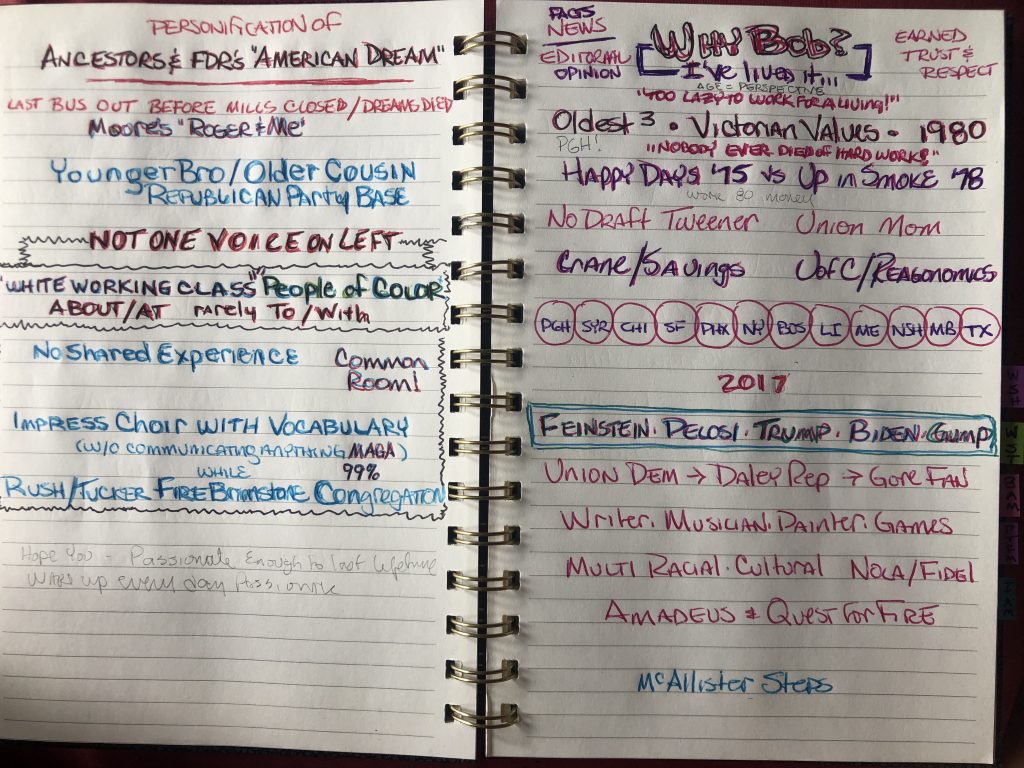 PERSONIFICATION OF
ANCESTORS & FDR'S "AMERICAN DREAM"
LAST BUS OUT BEFORE MILLS CLOSED/DREAMS DIED
MOORE'S "ROGER & ME"
YOUNGER BRO/OLDER COUSIN
REPUBLICAN PARTY BASE
NOT ONE VOICE ON LEFT
"WHITE WORKING CLASS" PEOPLE OF COLOR
ABOUT/AT RARELY TO/WITH
NO SHARED EXPERIENCE COMMON
ROOM!
IMPRESS CHOIR WITH VOCABULARY
(W/O COMMUNICATING ANYTHING MAGA)
WHILE 99%
RUSH/TUCKER FIRE BRIMSTONE CONGREGATION
HOPE YOU - PASSIONATE ENOUGH TO LAST LIFETIME
WAKE UP EVERY DAY
FACTS
NEWS
EDITORIAL
OPINION
WHY BOB?
I'VE LIVED IT...
AGE = PERSPECTIVE
EARNED
TRUST &
RESPECT
"TOO LAZY TO WORK FOR A LIVING!"
OLDEST 3 • VICTORIAN VALUES • 1980
PGH!
"NOBODY EVER DIED OF HARD WORK!"
HAPPY DAYS '75 VS UP IN SMOKE '78
WORK 80 MONEY
NO DRAFT TWEENER UNION MOM
CRANE/SAVINGS UOFC/REAGONOMICS
PGH SYR CHI SF PHX NY BOS LI ME NSH MB TX
2017
FEINSTEIN • PELOSI • TRUMP • BIDEN • GUMP
UNION DEM → DALEY REP → GORE FAN
WRITER • MUSICIAN • PAINTER • GAMES
MULTI RACIAL • CULTURAL NOLA/FIDEL
AMADEUS & QUEST FOR FIRE
MCALLISTER STEPS